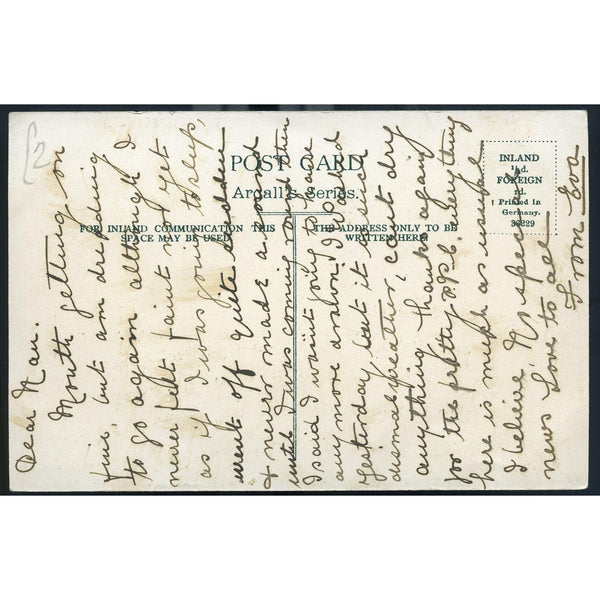 £2
POST CARD
Argall's Series.
FOR INLAND COMMUNICATION THIS
SPACE MAY BE USED
THE ADDRESS ONLY TO BE
WRITTEN HERE.
INLAND
½d.
FOREIGN
1d.
Printed in
Germany.
39229
Dear Nan.
Mouth getting on
fine, but am dreading
to go again although I
never felt faint nor yet
as if I was going to sleep,
went off quite sudden
& never made a sound
until I was coming round then
I said I wasn't going to have
any more drawn, I washed
yesterday but it is such
dismal weather, can't dry
anything thanks again
for the pretty P.P.C. everything
here is much as usual
I believe. No special
news Love to all
From Eva